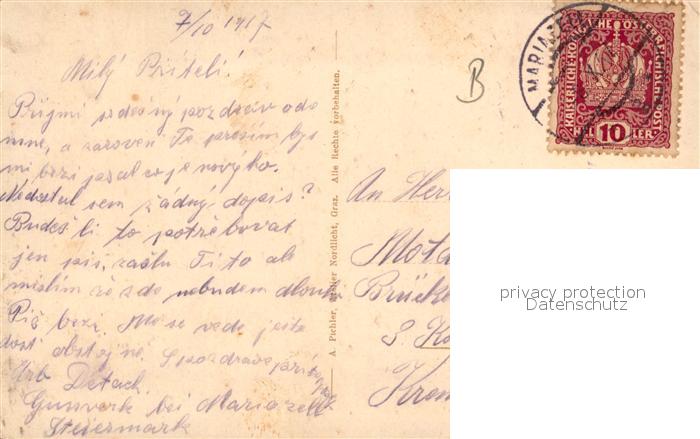 7/10 1917
Milý Příteli!
Přijmi srdečný pozdrav ode
mne, a zaroven Tě prosim bys
mi brzi psal co je noveho.
Nedostal sem žádný dopis?
Budeš li to potřebovat
jen piš, zašlu Ti to ale
mislím že zde nebudem dlouho
Piš brzi. Me se vede ješte
dost obstojně. S pozdravem
Detach.
Gusswerk bei Mariazell
Steiermark
A. Pichler, Atelier Nordlicht, Graz. Alle Rechte vorbehalten.
B
MARIAZELL
KAISERLICHE KÖN ÖSTERREICHISCHE POST
10
An Herr
Brück
S. Ko
Krem
privacy protection
Datenschutz